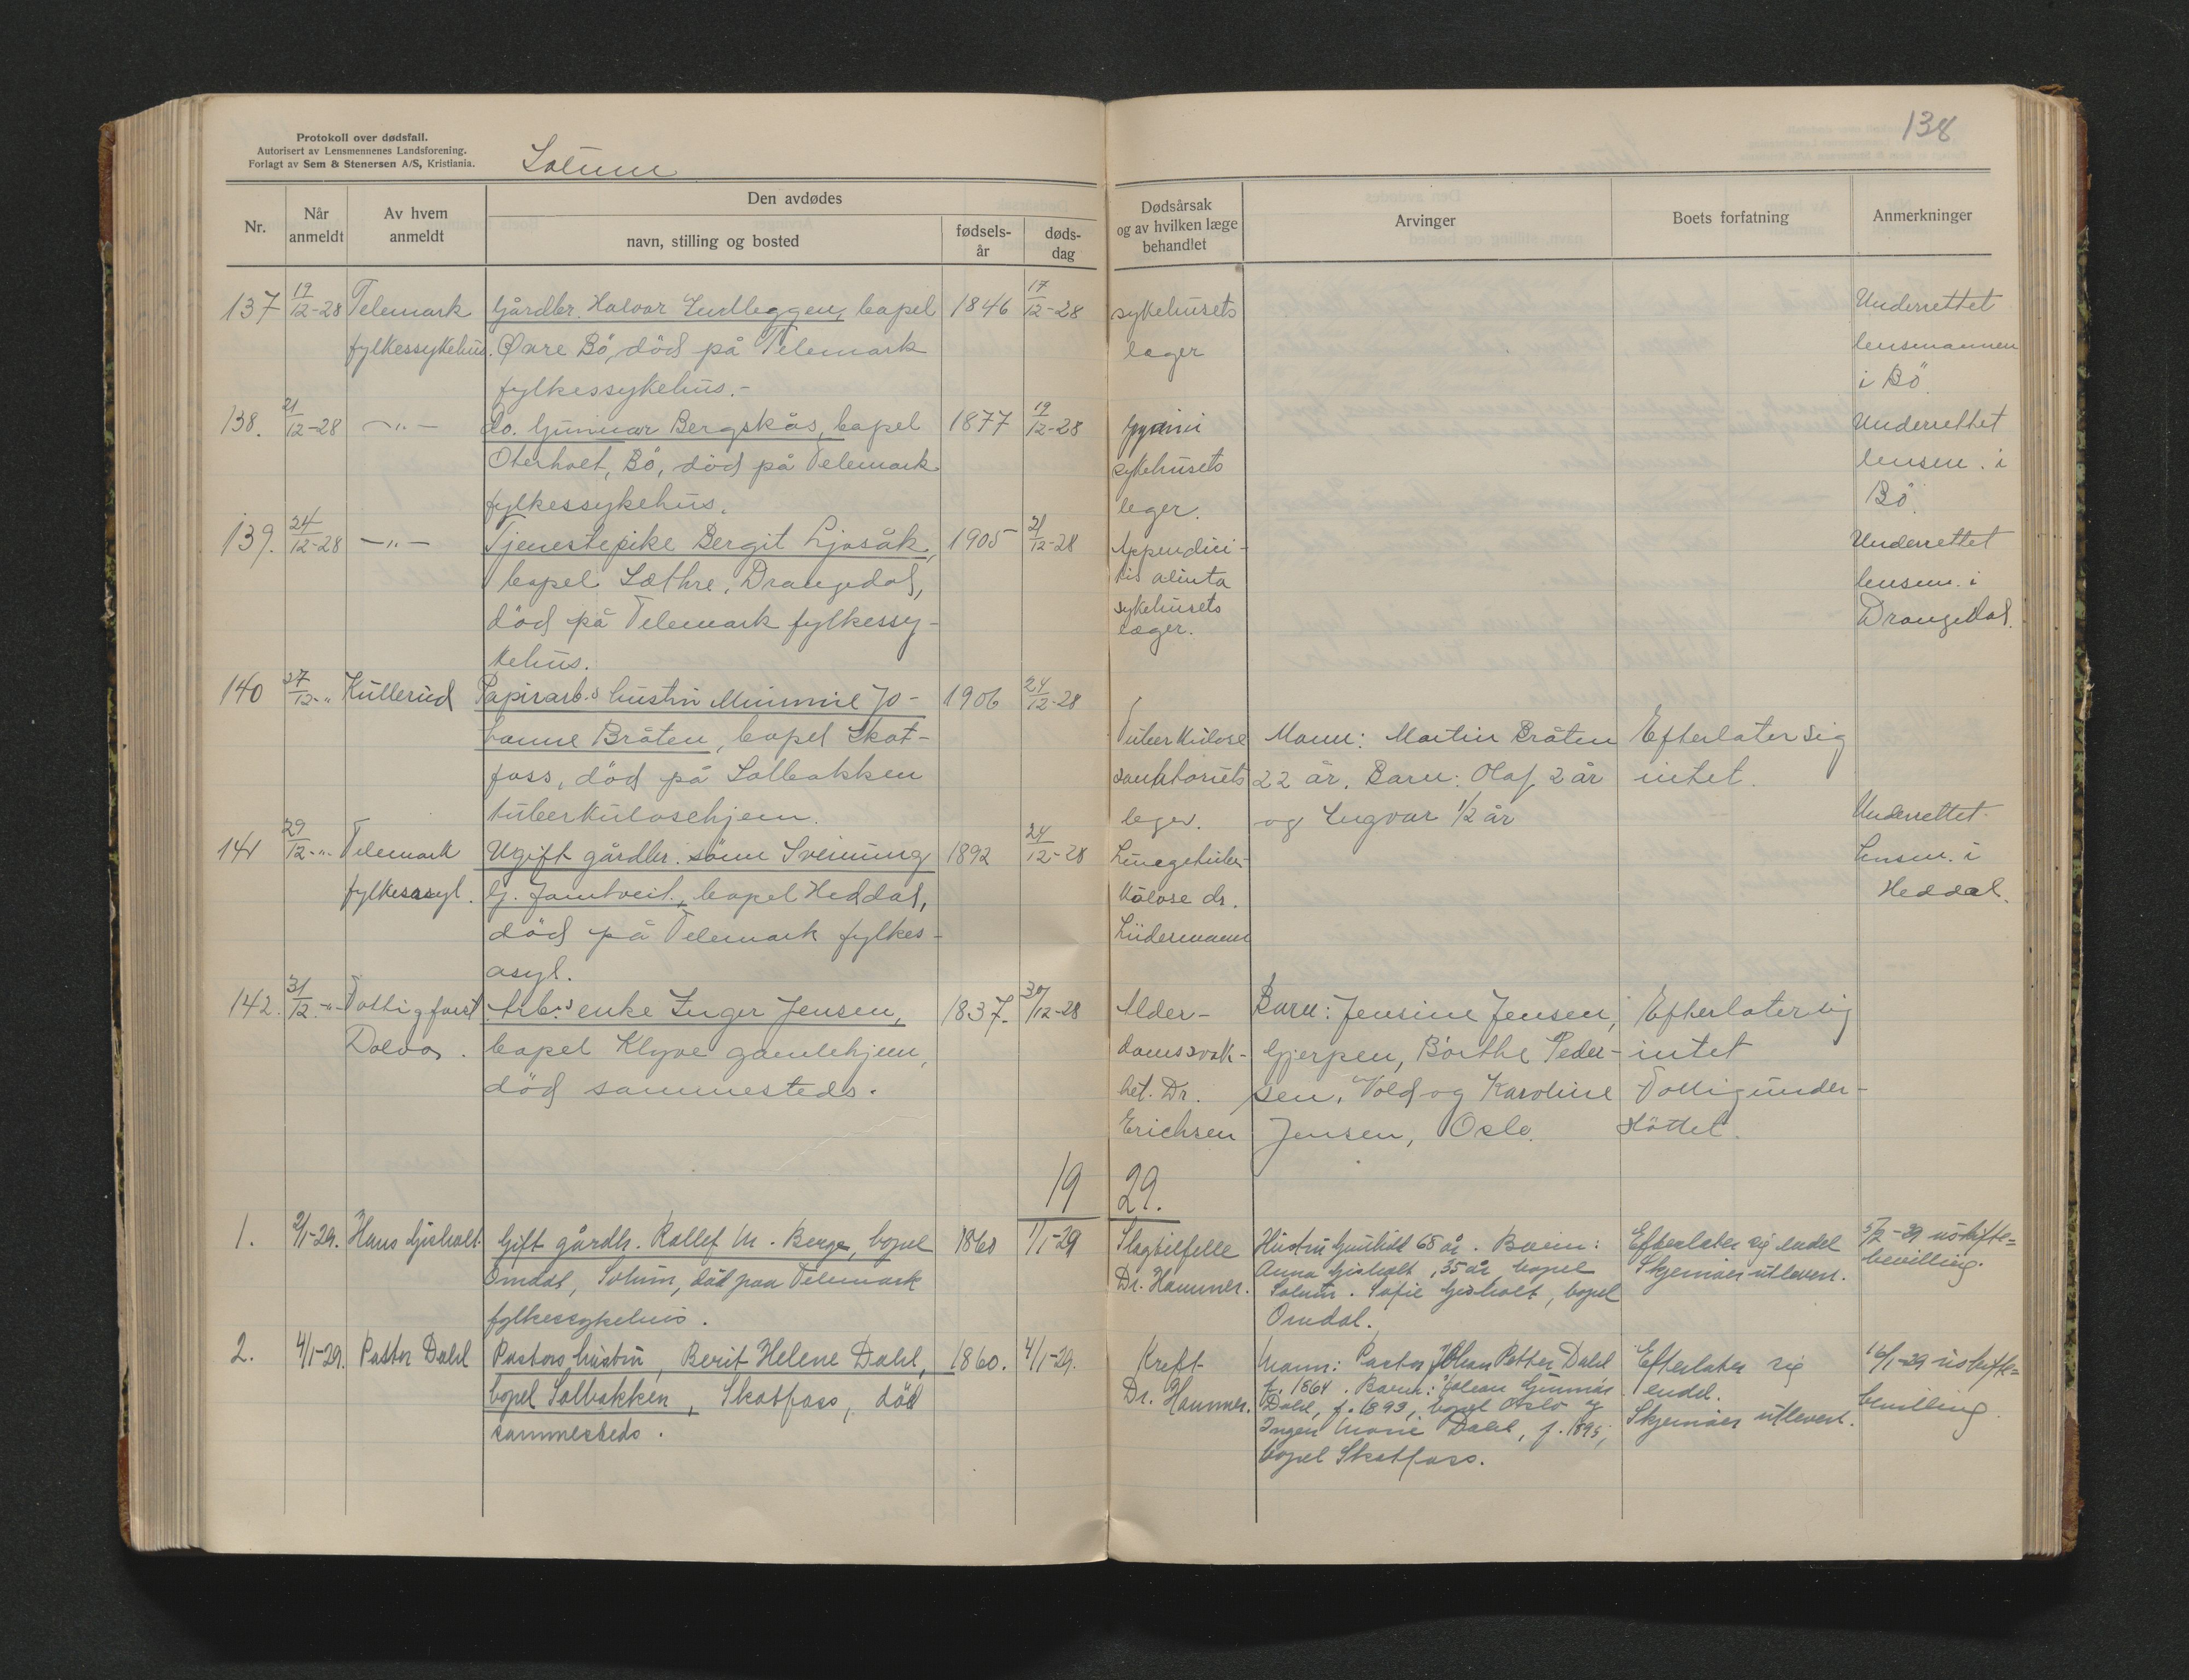 Protokoll over dødsfall.
Autorisert av Lensmennenes Landsforening.
Forlagt av Sem & Stenersen A/S, Kristiania.
Solum
138
Nr.
Når anmeldt
Av hvem anmeldt
Den avdødes
navn, stilling og bosted
fødsels-år
døds-dag
Dødsårsak og av hvilken læge behandlet
Arvinger
Boets forfatning
Anmerkninger
137 19/12-28 Telemark Gårdbr. Halvor bopel 1846 17/12-28 sykehusets Underrettet
fylkessykehus. Øvre Bö, död på Telemark læger lensmannen
fylkessykehus.- i Bö.
138. 21/12-28 -"- do. Gunnar Bergskås, bopel 1877 19/12-28 Underrettet
Oterholt, Bö, död på Telemark sykehusets lensm. i
fylkessykehus. leger. Bö.
139. 24/12-28 -"- Tjenestepike Bergit Ljosåk, 1905 21/12-28 Appendici- Underrettet
bopel Sæthre, Drangedal, tis sykehusets lensm. i
död på Telemark fylkessy- læger. Drangedal.
kehus.
140 27/12-" Kullerud Papirarb.s hustru Minnie Jo- 1906 24/12-28
hanne Bråten, bopel Skot- Tuberkulose Mann: Martin Bråten Efterlater sig
foss, död på Solbakken 22 år. Barn: Olaf 2 år intet.
tuberkulosehjem. leger. og Ingvar 1/2 år
141 29/12-" Telemark Ugift gårdbr. sönn Sveinung 1892 24/12-28 Lungetuber- Underrettet
fylkesasyl. G. Jamtveit, bopel Heddal, kulose dr. lensm. i
död på Telemark fylkes- Lüdermann Heddal.
asyl.
142. 31/12-" Fattigforst. Arb.s enke Inger Jensen, 1837. 30/12-28 Alder- Barn: Jensine Jensen, Efterlater sig
Dolva. bopel Klyve gamlehjem, domssvak- Gjerpen, Börthe Peder- intet
död sammesteds. het. Dr. sen, Vold og Karoline Fattigunder-
Erichsen Jensen, Oslo. stöttet.
19 29.
1. 2/1-29. Hans Gisholt Gift gårdbr. Rollef M. Berge, bopel 1860 1/1-29 Slagtilfelle Hustru Gunhild 68 år. Barn: Efterlater sig endel 5/2-29 uskifte=
Omdal, Solum, död paa Telemark Dr. Hammer. Anna Gisholt, 35 år bopel Skjemaer utlevert. bevilling.
fylkessykehus. Solum. Sofie Gisholt, bopel
Omdal.
2. 4/1-29. Pastor Dahl Pastors hustru, Berit Helene Dahl, 1860. 4/1-29. Kreft Mann: Pastor Johan Petter Dahl Efterlater sig 16/1-29 uskifte=
bopel Solbakken, Skotfoss, död Dr. Hammer. f. 1864. Barn: Johan Gunnar endel. bevilling.
sammesteds. Dahl, f. 1893, bopel Oslo og Skjemaer utlevert.
Inger Marie Dahl, f. 1895,
bopel Skotfoss.